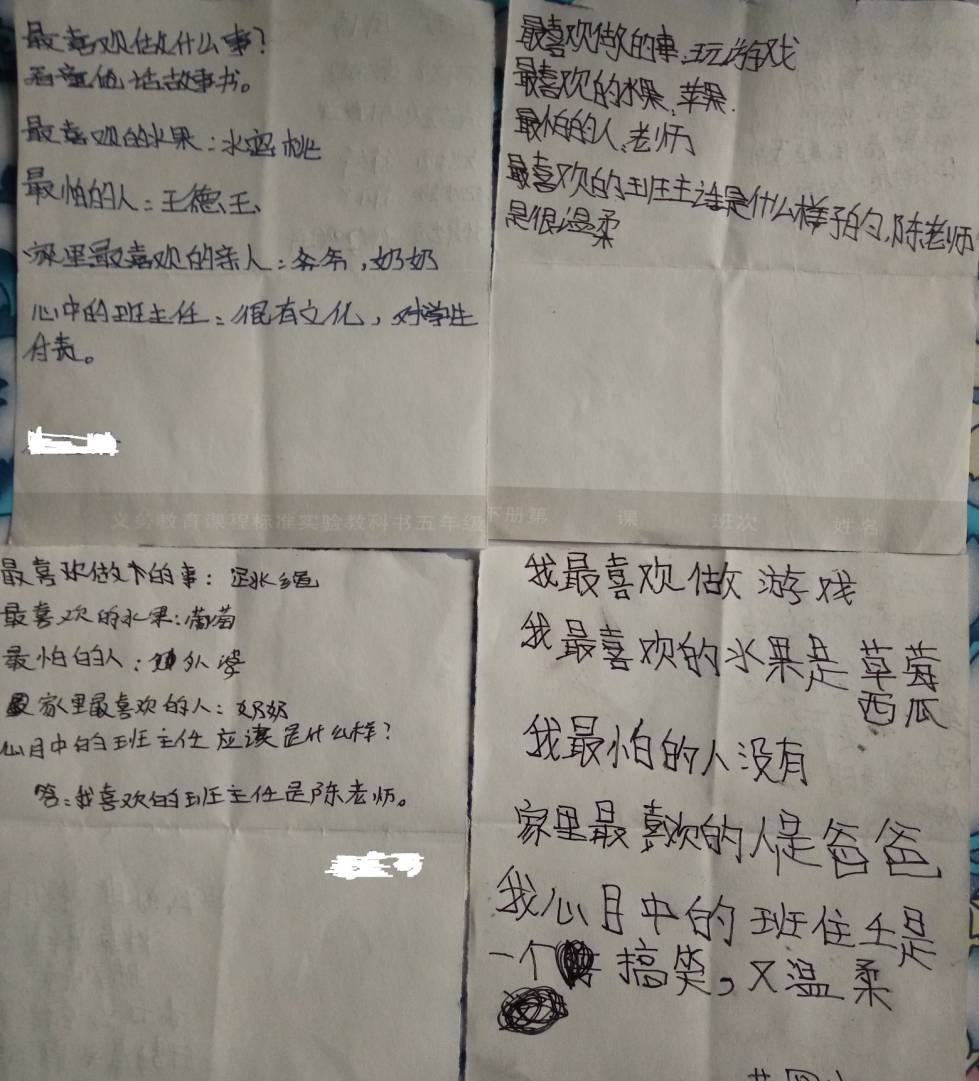 最喜欢做什么事?
看童话故事书。
最喜欢的水果:水蜜桃
最怕的人:王德玉
家里最喜欢的亲人:爷爷,奶奶
心中的班主任:很有文化,对学生
付责。
义务教育课程标准实验教科书五年级下册第 课 班次 姓名
最喜欢做的事、玩游戏
最喜欢的水果、苹果.
最怕的人、老师
最喜欢的班主 是什么样子的,陈老师
是很温柔
最喜欢做的事:
最喜欢的水果:葡萄
最怕的人:外婆
家里最喜欢的人:奶奶
心目中的班主任应该是什么样?
答:我喜欢的班主任是陈老师。
我最喜欢做游戏
我最喜欢的水果是草莓
西瓜
我最怕的人没有
家里最喜欢的人是爸爸
我心目中的班住土是
一个 搞笑,又温柔